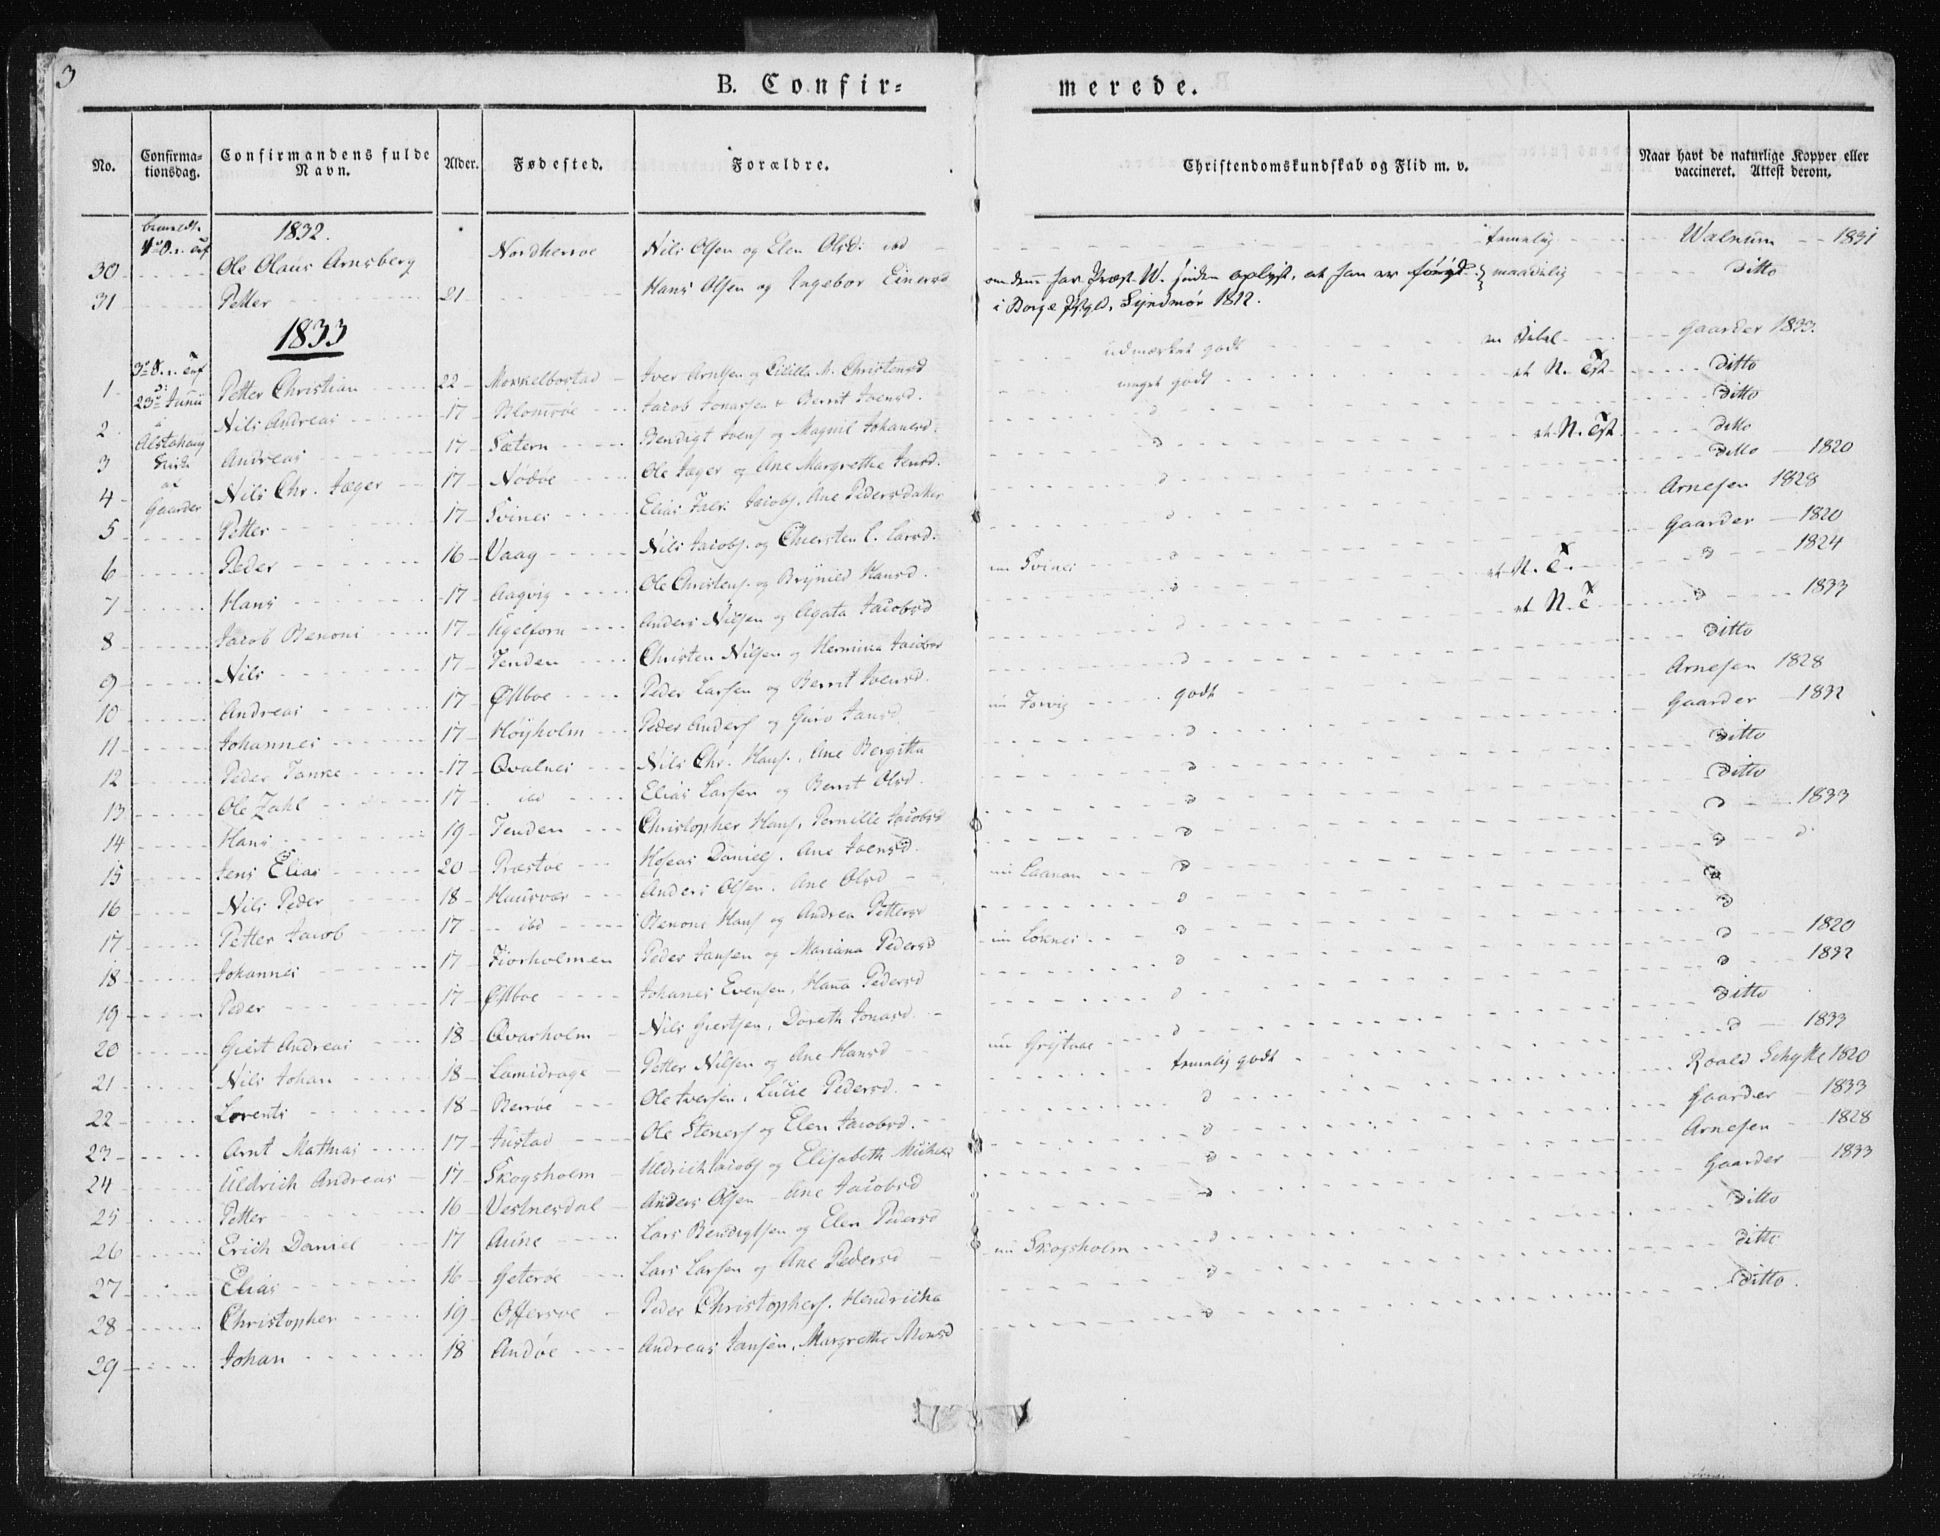 3
B. Confir=
merede.
No. Confirma-tionsdag. Confirmandens fulde Navn. Alder. Fødested. Forældre. Christendomskundskab og Flid m. v. Naar havt de naturlige Kopper eller vaccineret. Attest derom.
1832.
30 Ole Olaus Arnsberg Nordherroe Nils Olsen og Elen Olsd: ibd temelig Walnum 1831
31 Petter 21 Hans Olsen og Ingebor Einersd om denne har Præst W. siden oplyst, at han er maadelig ditto
i Borge Sundmør 1812.
1833
1 23de Junii Petter Christian 22 Morkelbostad Iver Arntsen og Cicilla M. Christensd udmærket godt Gaarder 1833.
2 Nils Andreas 17 Blomsøe Jacob Jonassen & Berrit Ivensd. meget godt et N. Tst ditto
3 Alstahaug Andreas 17 Sætern Bendigt Ivens og Magnil Johanesd. d ditto
4 af Nils Chr. Jæger 17 Nødøe Ole Jæger og Ane Margrethe Jensd. d et N. Tst ditto
5 Gaarder Petter 17 Svines Elias Jacobs. Ane Pedersdater d ditto 1820
6 Peder 16 Vaag Nils Jacobs. og Chiersten C. Larsd. d Arnesen 1828
7 Hans 17 Aagvig Ole Christens. og Brynild Hansd. nu Svines d Gaarder 1820
8 Jacob Benoni 17 Anders Nilsen og Agata Jacobsd d et N. T. d 1824
9 Nils 17 Tenden Christen Nilsen og Hermina Jacobsd d et N. T. d 1833
10 Andreas 17 Østboe Peder Larsen og Berrit Ivensd. d ditto
11 Johannes 17 Høyholm Peder Anders og Guro Jansd. nu Forvig godt Arnesen 1828
12 Peder Tanke 17 Qvalnes Nils Chr. Hans. Ane Bergitta d Gaarder 1832
13 Ole Zahl 17 ibd Elias Larsen og Berrit Olsd. d ditto
14 Hans 19 Tenden Christopher Hans. Pernille Jacobsd d ditto
15 Jens Elias 20 Præstøe Hoseas Daniels. Ane Ivensd. d d 1833
16 Nils Peder 18 Huusvær Anders Olsen. Ane Olsd nu Laanan d d d
17 Petter Jacob 17 ibd Benoni Hans og Andrea Pettersd d d
18 Johannes 17 Fiorholmen Peder Jansen og Mariana Pedersd nu Loknes d d
19 Peder 17 Østboe Johanes Evensen, Hana Pedersd d d 1820
20 Giert Andreas 18 Qvarholm Nils Giertsen, Doreth Jonasd. d d 1832
21 Nils Johan 18 Lamidrage Petter Nilsen og Ane Hansd nu Grøjtvae d ditto
22 Lorents 18 Berrøe Ole Iversen, Lucie Pedersd. temelig godt d 1833
23 Arnt Mathias 17 Justad Ole Steners og Elen Jacobsd. d Roald Schytte 1820
24 Uldrich Andreas 17 Skogsholm Uldrich Jacobs og Elisabeth Michelsd d Gaarder 1833
25 Petter 16 Vestnesdal Anders Olsen - Ane Jacobsd d Arnesen 1828
26 Erich Daniel 17 Aune Lars Bendigtsen og Elen Pedersd d Gaarder 1833
27 Elias 16 Geterøe Lars Larsen og Ane Pedersd nu Skogsholm d ditto
28 Christopher 19 Offersøe Peder Christophers. Hendricha d ditto
29 Johan 18 Andøe Andreas Jansen, Margrethe Monsd d ditto.